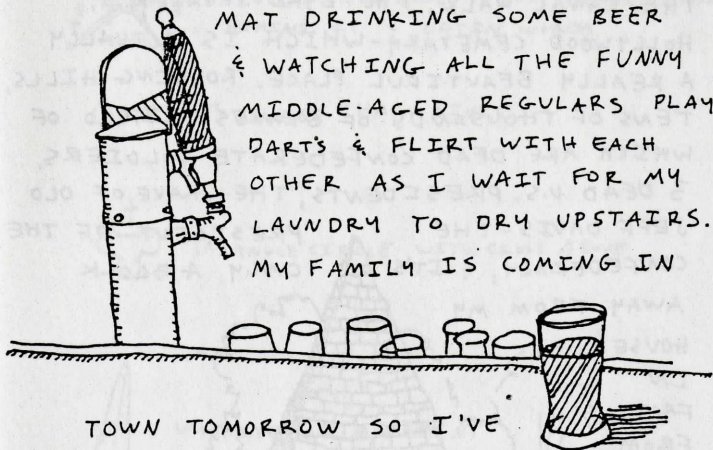 MAT DRINKING SOME BEER
& WATCHING ALL THE FUNNY
MIDDLE-AGED REGULARS PLAY
DARTS & FLIRT WITH EACH
OTHER AS I WAIT FOR MY
LAUNDRY TO DRY UPSTAIRS.
MY FAMILY IS COMING IN
TOWN TOMORROW SO I'VE